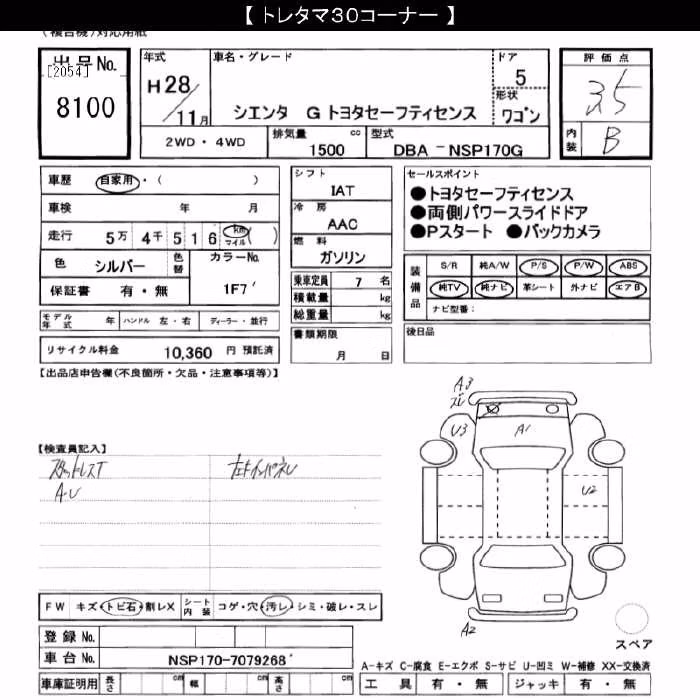 【 トレタマ30コーナー 】
(複合機)対応用紙
出品No.
[2054]
8100
年式
H28/11月
車名・グレード
シエンタ G トヨタセーフティセンス
ドア
5
形状
ワゴン
評価点
3.5
内装
B
2WD・4WD
排気量
1500
cc
型式
DBA-NSP170G
車歴 自家用・( )
車検 年 月
走行 5万 4千 5 1 6 km マイル ( )
色 シルバー
色替
カラーNo.
1F7
保証書 有・無
シフト
IAT
冷房
AAC
燃料
ガソリン
乗車定員 7 名
積載量 kg
総重量 kg
書類期限
月 日
セールスポイント
●トヨタセーフティセンス
●両側パワースライドドア
●Pスタート ●バックカメラ
装備品
S/R 純A/W P/S P/W ABS
純TV 純ナビ 革シート 外ナビ エアB
ナビ型番:
後日品
モデル年式 年 ハンドル 左・右 ディーラー・並行
リサイクル料金 10,360 円 預託済
【出品店申告欄(不良箇所・欠品・注意事項等)】
【検査員記入】
スタットレスT
A・U
A3
U3
A1
U2
A2
スペア
FW キズ・トビ石・割レX
シート内装 コゲ・穴・汚レ・シミ・破レ・スレ
登録No.
車台No. NSP170-7079268
車庫証明用 長さ cm 幅 cm 高さ cm
A-キズ C-腐食 E-エクボ S-サビ U-凹ミ W-補修 XX-交換済
工具 有・無 ジャッキ 有・無